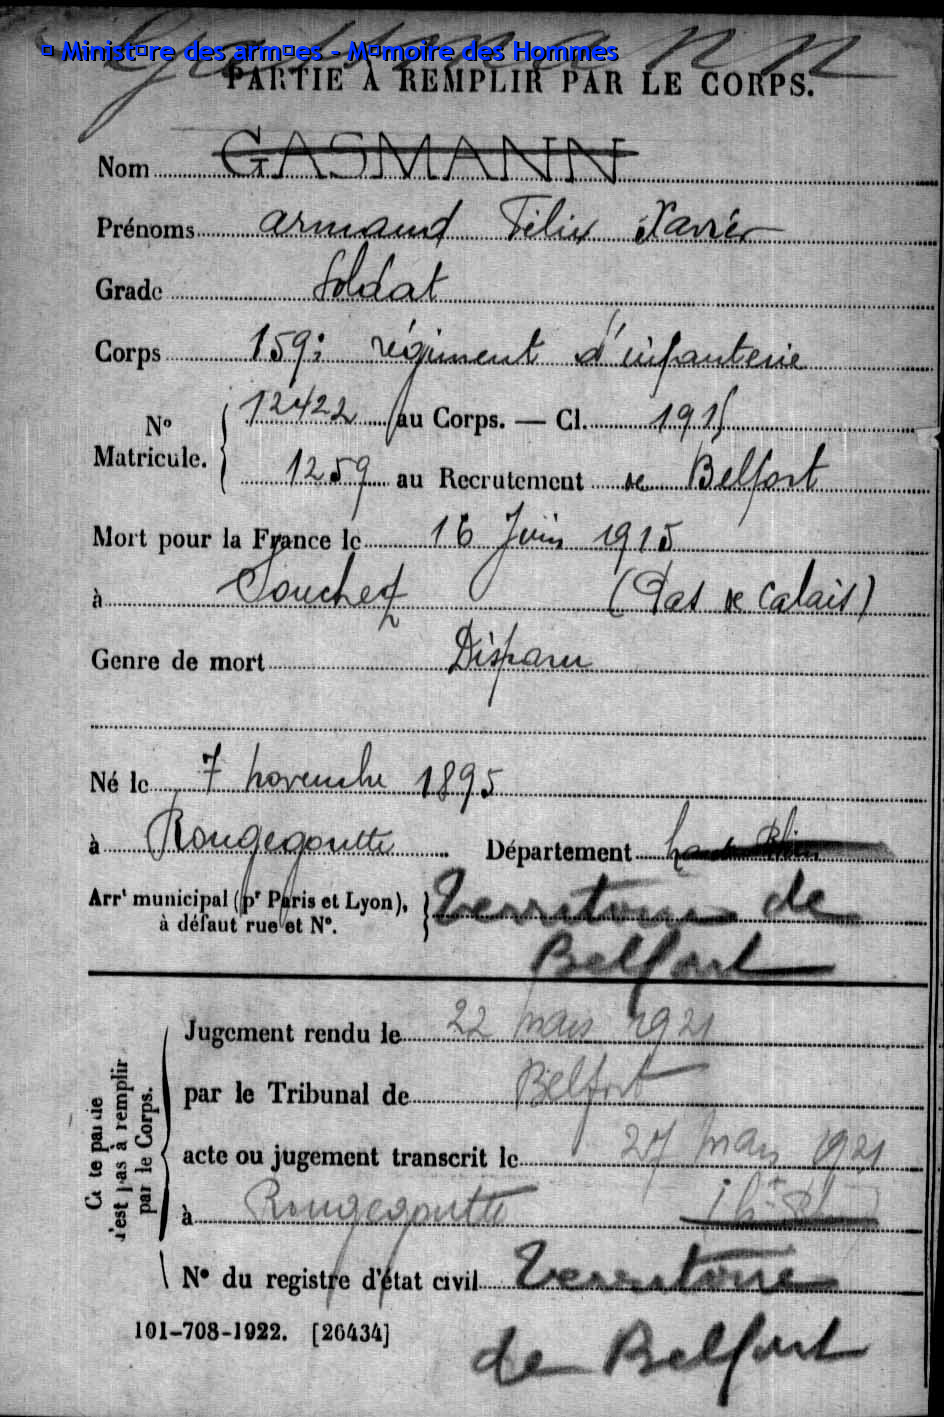 © Ministère des armées - Mémoire des Hommes
PARTIE À REMPLIR PAR LE CORPS.
Nom GASMANN
Prénoms Armand Félix Xavier
Grade Soldat
Corps 159e régiment d'infanterie
N° Matricule. 12422 au Corps. — Cl. 1915
1259 au Recrutement de Belfort
Mort pour la France le 16 Juin 1915
à Souchez (Pas de Calais)
Genre de mort Disparu
Né le 7 novembre 1895
à Rougegoutte Département haut Rhin
Arrt municipal (pr Paris et Lyon), à défaut rue et N°. Territoire de
Belfort
Cette partie n'est pas à remplir par le Corps.
Jugement rendu le 22 mars 1921
par le Tribunal de Belfort
acte ou jugement transcrit le 27 mars 1921
à Rougegoutte (ht Rhin)
N° du registre d'état civil Territoire
de Belfort
101-708-1922. [26434]